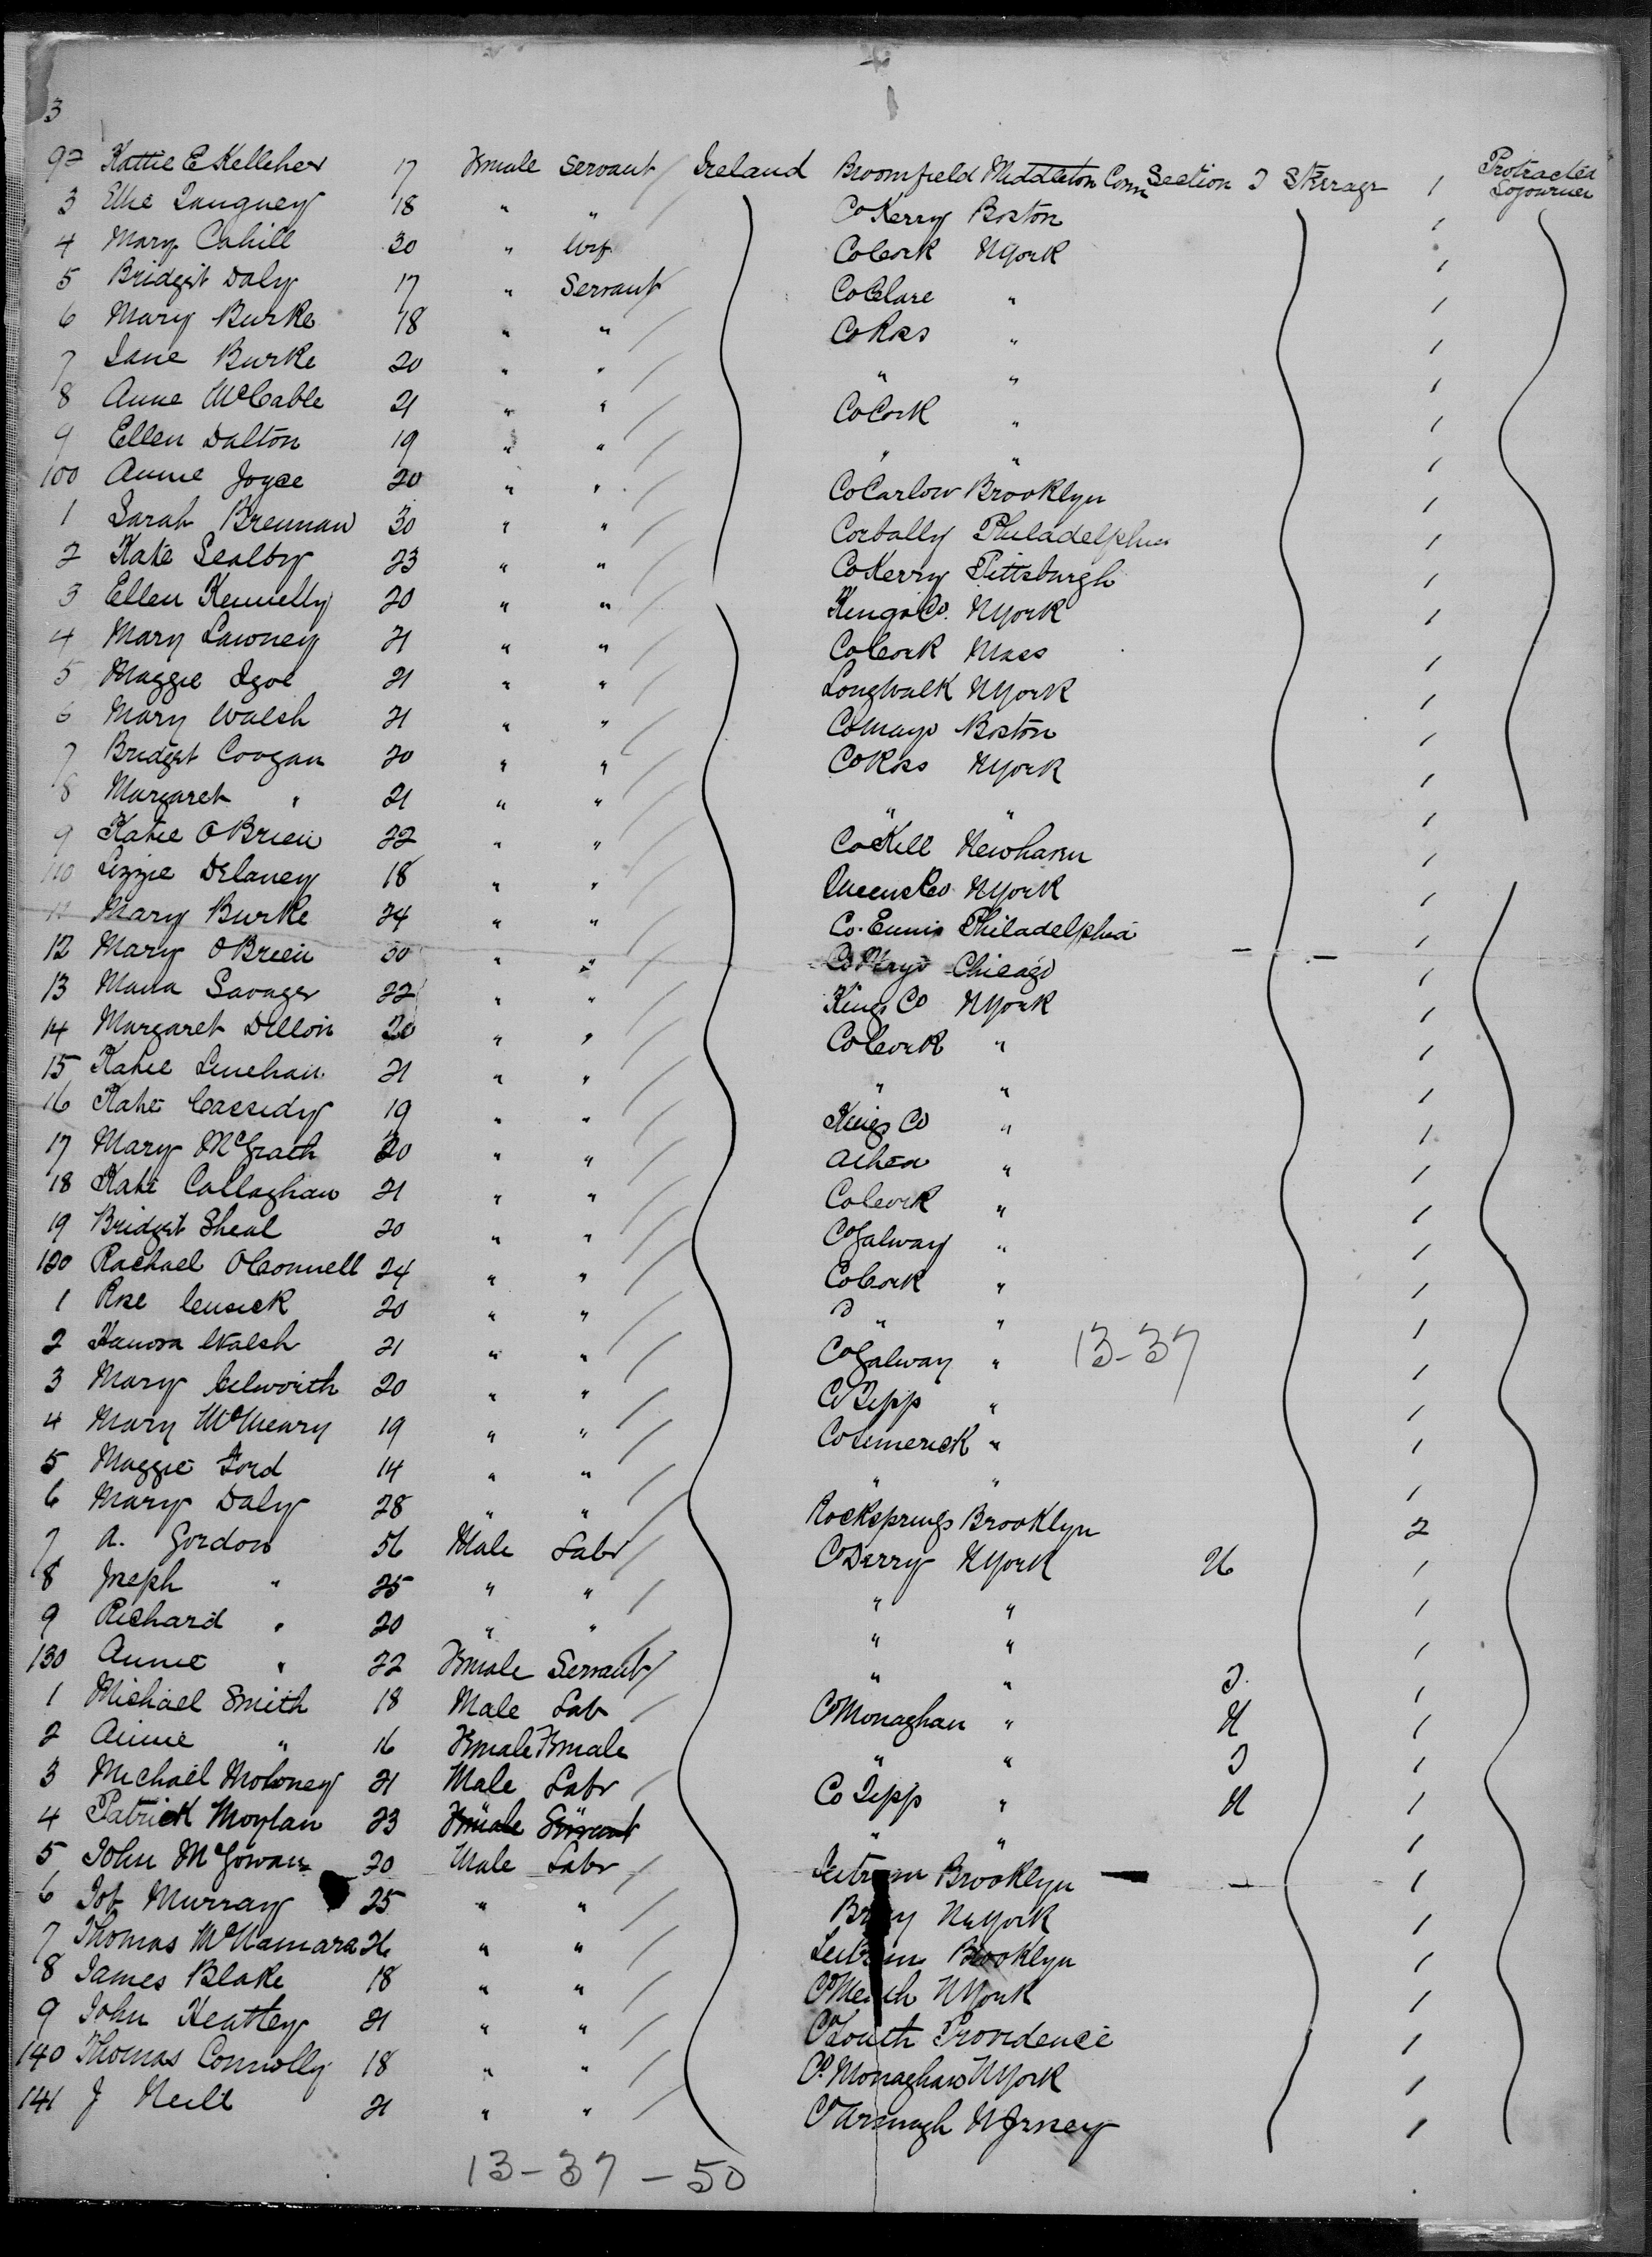 3
92 Kattie E Kelleher 17 Female Servant / Ireland Broomfield Middleton Conn Section 2 Steerage 1 Protracted Sojourner
3 18 " " / Co Kerry Boston 1
4 Mary Cahill 30 " Wife Co Cork NYork 1
5 Bridget Daly 17 " Servant / Co Clare " 1
6 Mary Burke 18 " " / Co Ross " 1
7 Jane Burke 20 " " / " " 1
8 Anne McCabe 21 " " / Co Cork " 1
9 Ellen Dalton 19 " " / " " 1
100 Annie Joyce 20 " " / Co Carlow Brooklyn 1
1 Sarah Brennan 30 " " / Corbally Philadelphia 1
2 Kate 23 " " / Co Kerry Pittsburgh 1
3 Ellen Kennelly 20 " " / Kings Co. NYork 1
4 Mary Lawney 21 " " / Co Cork Mass 1
5 Maggie Igoe 21 " " / Longwalk NYork 1
6 Mary Walsh 21 " " / Co Mayo Boston 1
7 Bridget Coogan 20 " " / Co Ross NYork 1
8 Margaret " 21 " " / " " 1
9 Katie OBrien 22 " " / Co Kill Newhaven 1
110 Lizzie Delaney 18 " " / Queens Co NYork 1
11 Mary Burke 24 " " / Co. Ennis Philadelphia 1
12 Mary OBrien 30 " " / Co Mayo Chicago 1
13 Maria Savage 22 " " / Kings Co NYork 1
14 Margaret Dillon 20 " " / Co Cork " 1
15 Katie Linehan 21 " " / " " 1
16 Kate Cassidy 19 " " / Kings Co " 1
17 Mary McGrath 20 " " / " 1
18 Kate Callaghan 21 " " / Co Cork " 1
19 Bridget Sheal 20 " " / Co Galway " 1
120 Rachael OConnell 24 " " / Co Cork " 1
1 Rose Cusick 20 " " / " " 1
2 Hanora Walsh 21 " " / Co Galway " 13-37 1
3 Mary 20 " " / Co Tipp " 1
4 Mary 19 " " / Co Limerick " 1
5 Maggie Ford 14 " " / " " 1
6 Mary Daly 28 " " / Rocksprings Brooklyn 2
7 A. Gordon 56 Male Labr / Co Derry NYork 1
8 Joseph " 25 " " / " " 1
9 Richard " 20 " " / " " 1
130 Annie " 22 Female Servant / " " 2. 1
1 Michael Smith 18 Male Lab / Co Monaghan " 1
2 Annie " 16 Female Female " " 2 1
3 Michael Moloney 21 Male Labr / Co Tipp " 1
4 Patrick Moylan 23 Female Servant " " 1
5 John McGowan 20 Male Labr / Leitrim Brooklyn 1
6 Murray 25 " " / Bray NYork 1
7 Thomas McNamara 26 " " / Leitrim Brooklyn 1
8 James Blake 18 " " / Co Meath NYork 1
9 John Heatley 21 " " / Co Louth Providence 1
140 Thomas Connolly 18 " " / Co. Monaghan NYork 1
141 J Neill 21 " " / Co Armagh NJersey 1
13-37-50